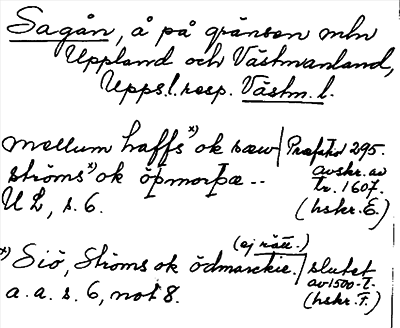 Sagån, å på gränsen mln
Uppland och Västmanland,
Upps.l. resp. Västm.l.
mellum haffs x) ok sæw
ströms x) ok öþmorþæ --
UL, s. 6.
Præfatio 295.
avskr. av
tr. 1607.
(hskr. E.)
x) Siö, Ströms ok ödmarckie.
(ej rätt.)
a. a. s. 6, not 8.
slutet
av 1500-t.
(hskr. F.)